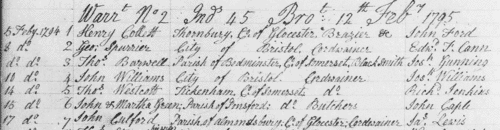 Warr.t No 2 Ind.s 45 Bro.t 12th Feb.y 1795
5 Feby. 1794 1 Henry Collett Thornbury, C. of Glocester Brazier &c John Ford
8 do 2 Geo. Spurrier City of Bristol Cordwainer Edw.d T. Cann
do do 3 Thos. Bagwell Parish of Bedminster, C. of Somerset, Black Smith Jos. Gunning
10 do 4 John Williams City of Bristol Cordwainer Jos. Williams
14 do 5 Thos. Westcott Tickenham, C. of Somerset do Rich.d Jenkins
15 do 6 John & Martha Green; Parish of Pensford; do Butchers John Caple
17 do 7 John Culford Parish of almondsbury; C. of Glocester; Cordwainer Jas. Lewis